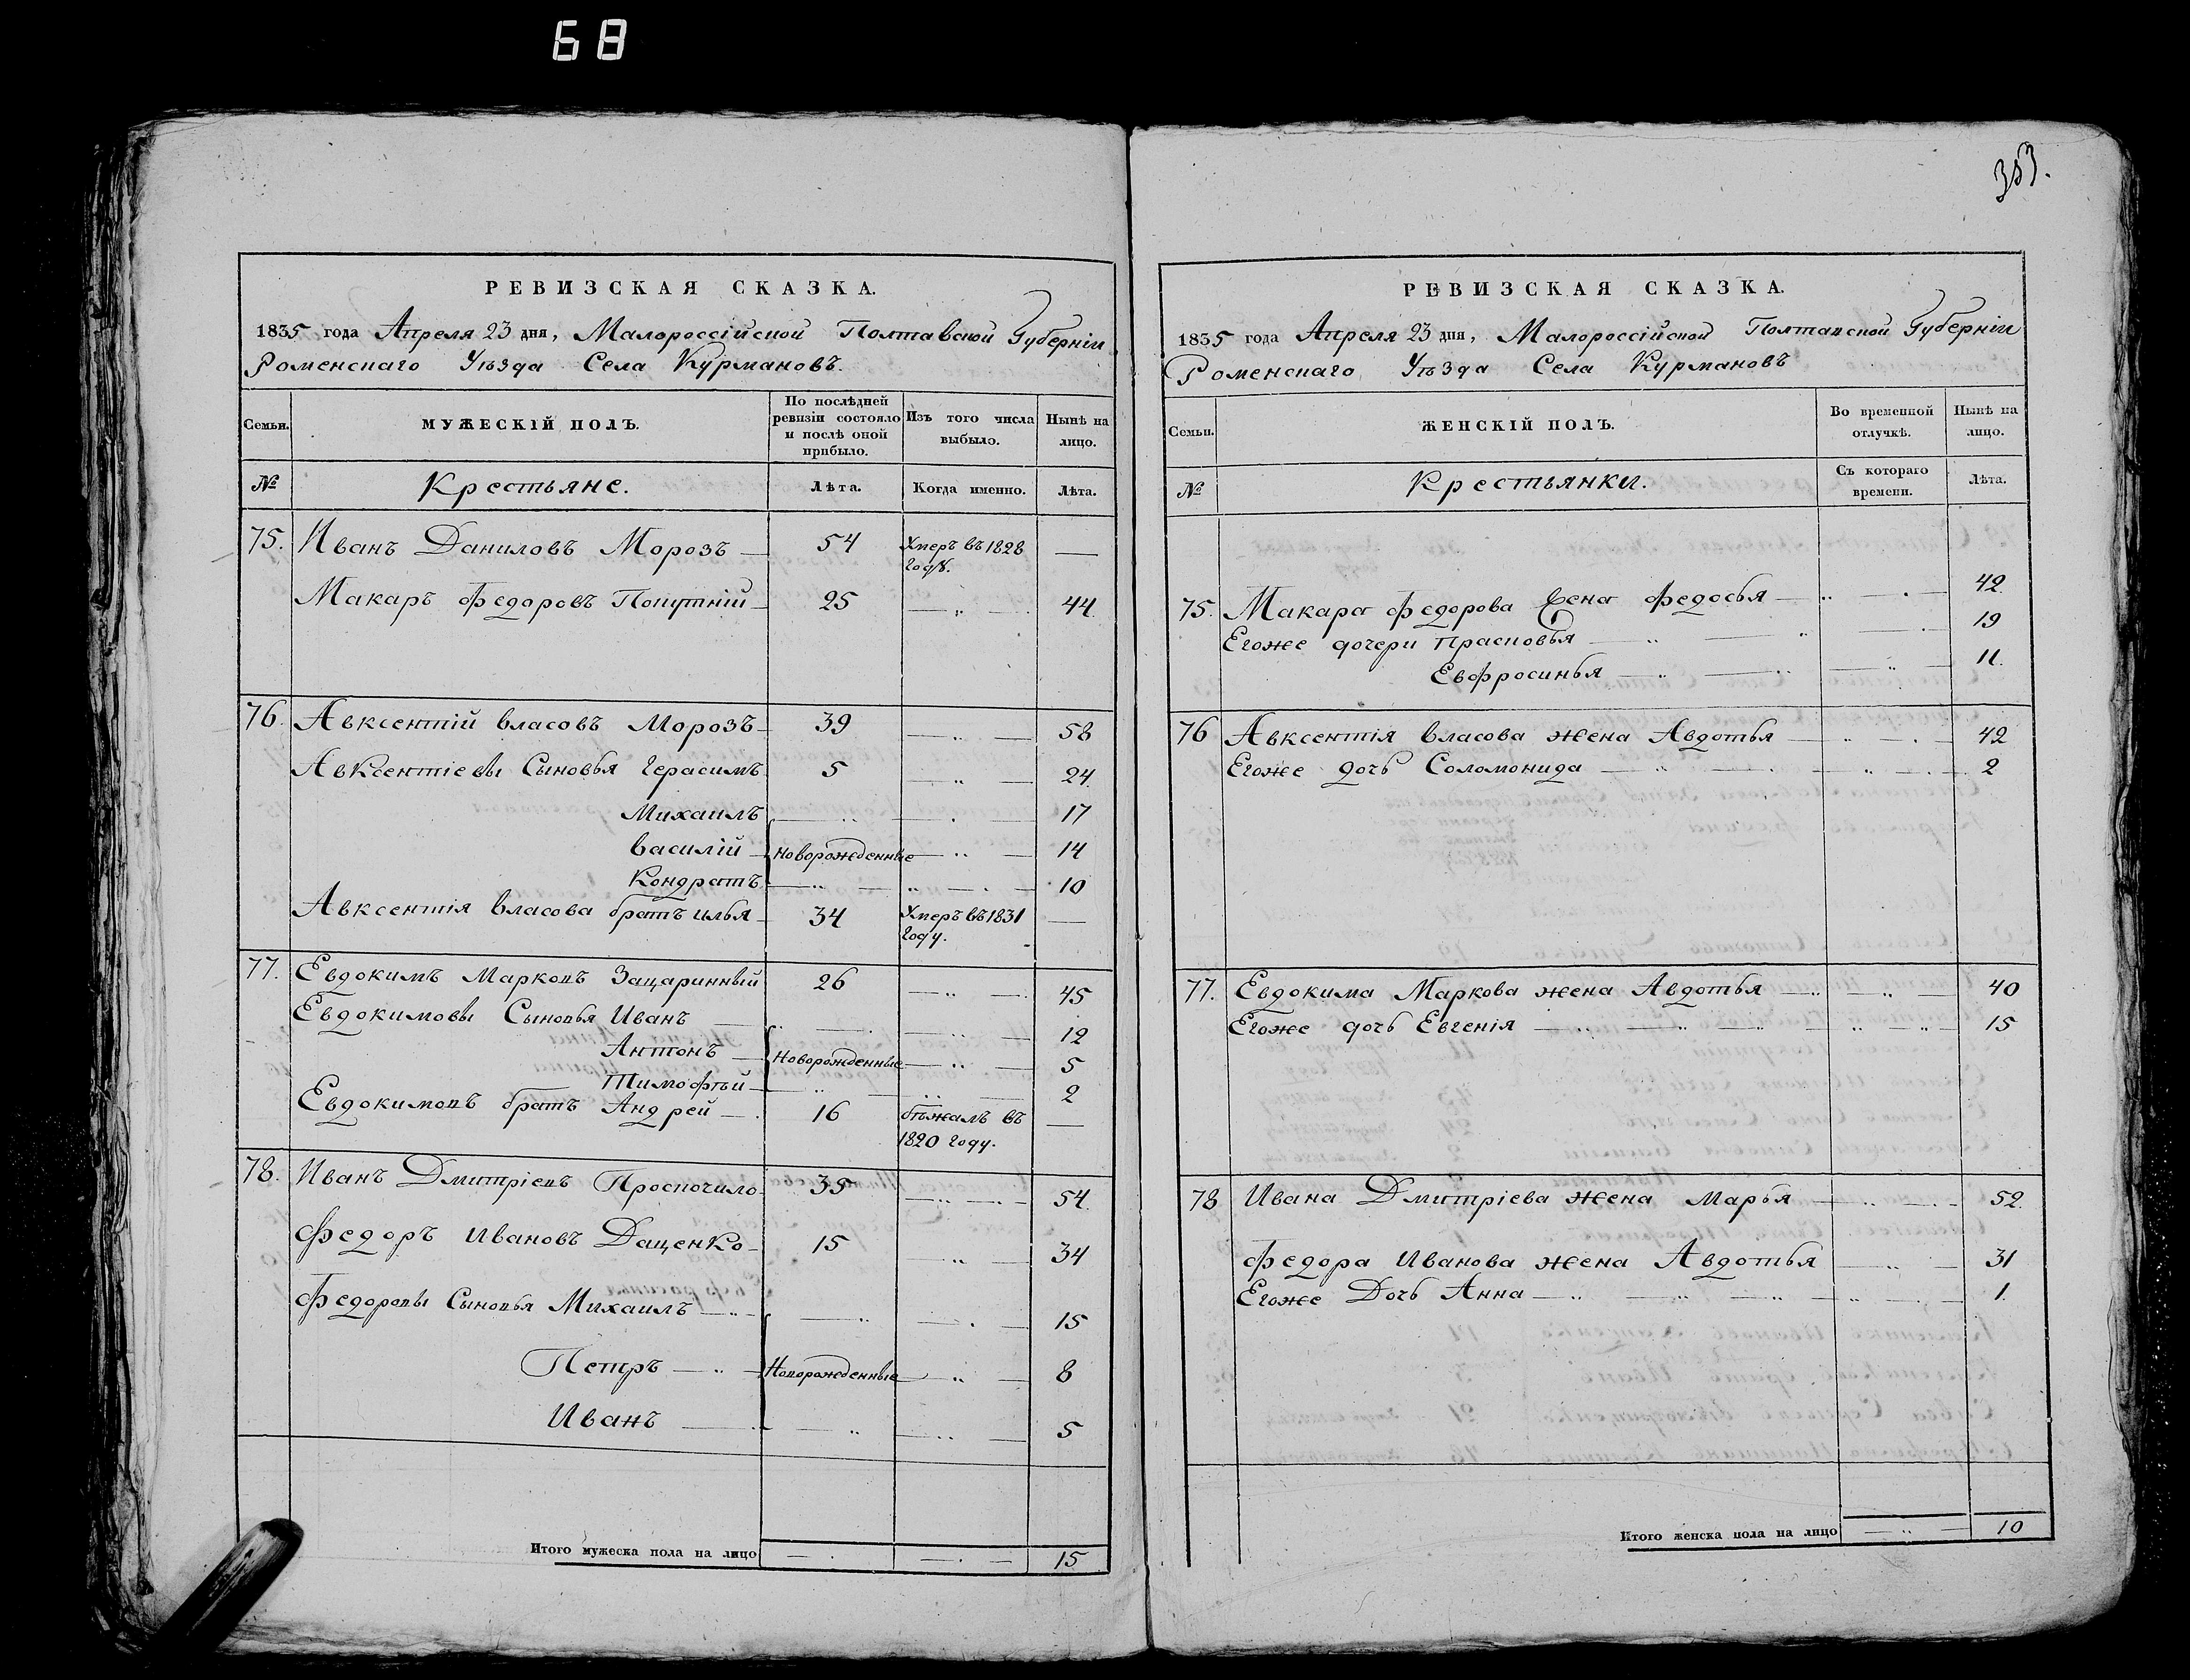 68
РЕВИЗСКАЯ СКАЗКА.
1835 года Апреля 23 дня, Малороссійской Полтавской Губерніи
Роменскаго Уѣзда Села Курмановъ.
Семьи.
МУЖЕСКІЙ ПОЛЪ.
По послѣдней
ревизіи состояло
и послѣ оной
прибыло.
Изъ того числа
выбыло.
Нынѣ на
лицо.
№
Крестьяне.
Лѣта.
Когда именно.
Лѣта.
75. Иванъ Даниловъ Морозъ — 54 Умеръ въ 1828 —
году.
Макаръ Федоровъ 25 — „ — 44.
76. Авксентій Власовъ Морозъ — 39 — „ — 58
Авксентіевы Сыновья Герасимъ 5 — „ — 24.
Михаилъ — „ — 17
Василій — Новорожденные — „ — 14
Кондратъ — „ — 10
Авксентія Власова братъ Илья — 34 Умеръ въ 1831 —
году.
77. Евдокимъ Марковъ Зацаринный 26 — „ — 45
Евдокимовы Сыновья Иванъ — „ — 12
Антонъ — Новорожденные — „ — 5
Тимофѣй — „ — 2
Евдокимовъ братъ Андрей — 16 бѣжалъ въ —
1820 году.
78. Иванъ Дмитріевъ Проскочило 35 — „ — 54.
Федоръ Ивановъ Даценко — 15 — „ — 34
Федоровы Сыновья Михаилъ — „ — 15
Петръ — „ — Новорожденные — „ — 8
Иванъ — „ — 5
Итого мужеска пола на лицо — . — . — 15
353.
РЕВИЗСКАЯ СКАЗКА.
1835 года Апреля 23 дня, Малороссійской Полтавской Губерніи
Роменскаго Уѣзда Села Курмановъ
Семьи.
ЖЕНСКІЙ ПОЛЪ.
Во временной
отлучкѣ.
Нынѣ на
лицо.
№
Крестьянки.
Съ котораго
времени.
Лѣта.
75. Макара Федорова жена Федосья — „ — 42
Егоже дочери Прасковья — „ — 19
Евфросинья — „ — 11.
76 Авксентія Власова жена Авдотья — „ — 42
Егоже дочь Соломонида — „ — 2
77. Евдокима Маркова жена Авдотья — „ — 40
Егоже дочь Евгенія — „ — 15
78 Ивана Дмитріева жена Марья — „ — 52.
Федора Иванова жена Авдотья — „ — 31
Егоже Дочь Анна — „ — 1.
Итого женска пола на лицо — „ — 10